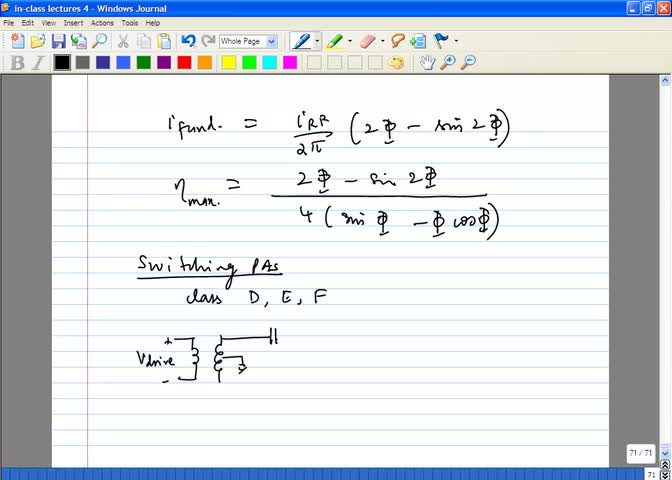 in-class lectures 4 - Windows Journal
File Edit View Insert Actions Tools Help
Whole Page
B I
i fund. = i RF / 2π (2Φ − sin 2Φ)
η max. = 2Φ − sin 2Φ / 4 (sin Φ − Φ cos Φ)
Switching PAs
class D, E, F
+
Vdrive
−
71 / 71
71